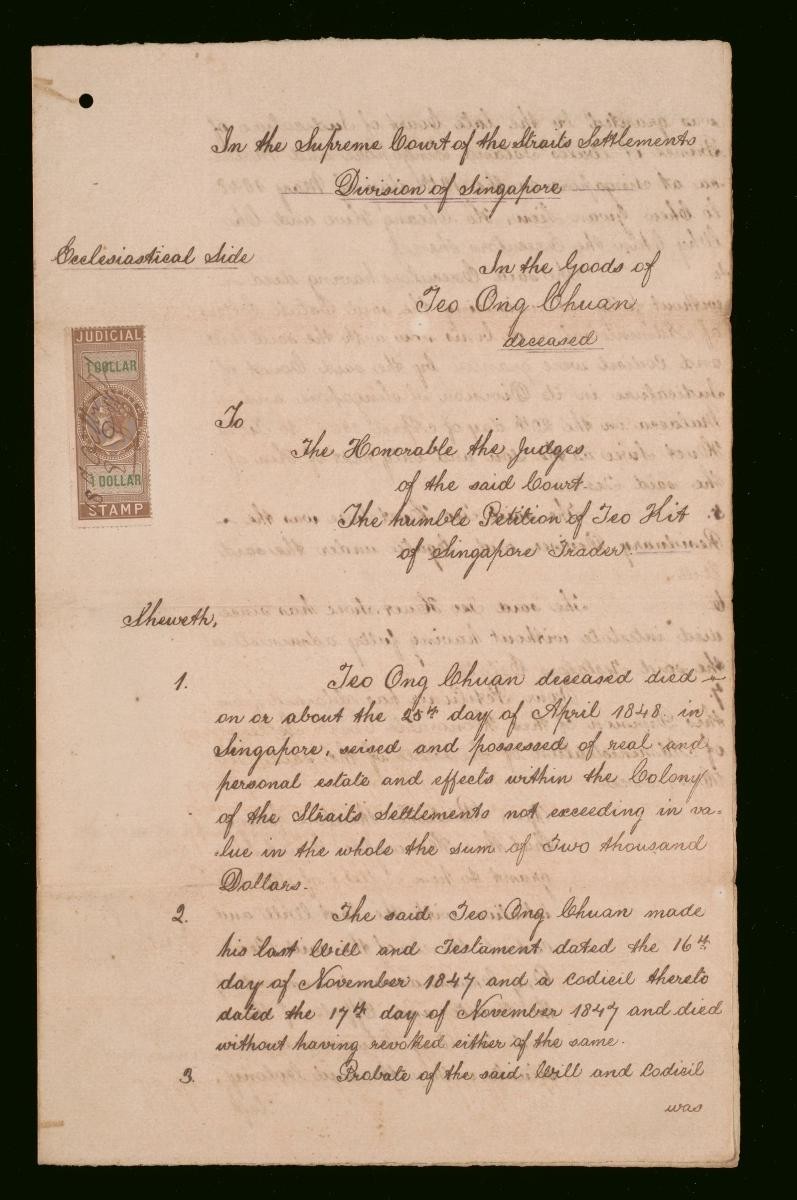 In the Supreme Court of the Straits Settlements
Division of Singapore
Ecclesiastical Side
In the Goods of
Teo Ong Chuan
deceased
JUDICIAL
1 DOLLAR
1 DOLLAR
STAMP
To
The Honorable the Judges
of the said Court.
The humble Petition of Teo Kit
of Singapore Trader.
Sheweth,
1. Teo Ong Chuan deceased died
on or about the 25th day of April 1848 in
Singapore, seised and possessed of real and
personal estate and effects within the Colony
of the Straits Settlements not exceeding in va-
-lue in the whole the sum of Two thousand
Dollars.
2. The said Teo Ong Chuan made
his last Will and Testament dated the 16th
day of November 1847 and a Codicil thereto
dated the 17th day of November 1847 and died
without having revoked either of the same.
3. Probate of the said Will and Codicil
was